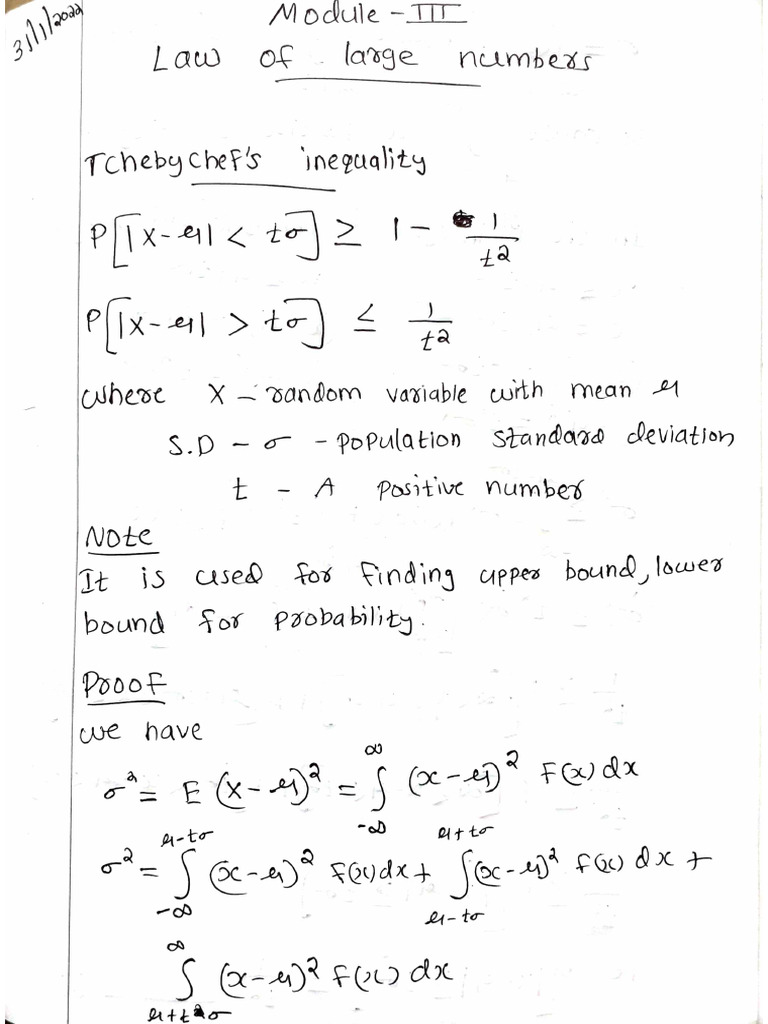 31/1/2022
Module - III
Law of large numbers
Tchebychef's inequality
P[|X-μ| < tσ] ≥ 1 - 1/t²
P[|X-μ| > tσ] ≤ 1/t²
where X - random variable with mean μ
S.D - σ - population standard deviation
t - A positive number
Note
It is used for finding upper bound, lower
bound for probability.
Proof
we have
σ² = E(X-μ)² = ∫_{-∞}^{∞} (x-μ)² f(x) dx
σ² = ∫_{-∞}^{μ-tσ} (x-μ)² f(x) dx + ∫_{μ-tσ}^{μ+tσ} (x-μ)² f(x) dx +
∫_{μ+tσ}^{∞} (x-μ)² f(x) dx